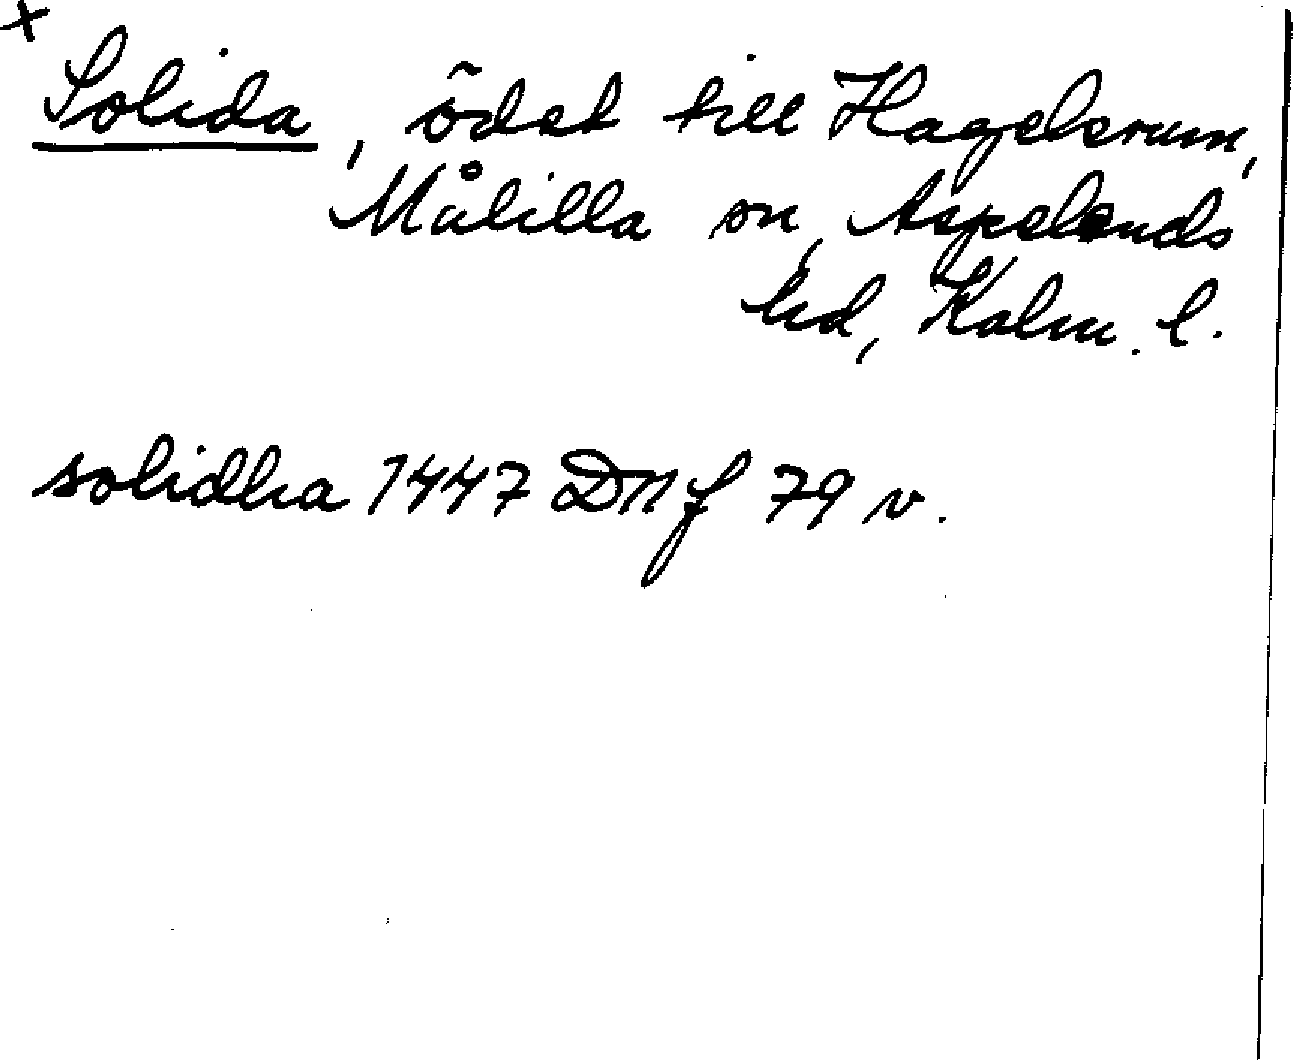 x
Solida, ödet till Hagelsrum,
Målilla sn, Aspelands
hd, Kalm. l.
solidha 1447 Dn f 79 v.